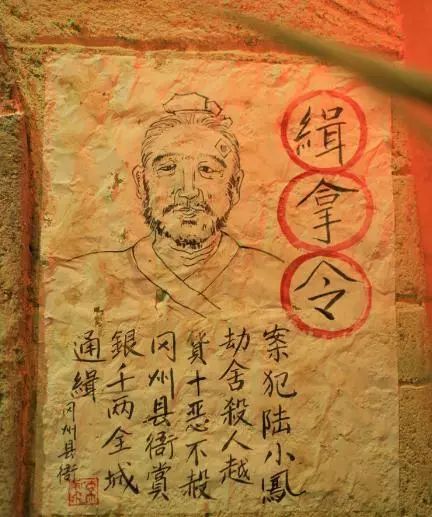 緝拿令
案犯陆小鳳
劫舍殺人越
貨十惡不赦
冈州县衙賞
銀千两全城
通緝
冈州县衙